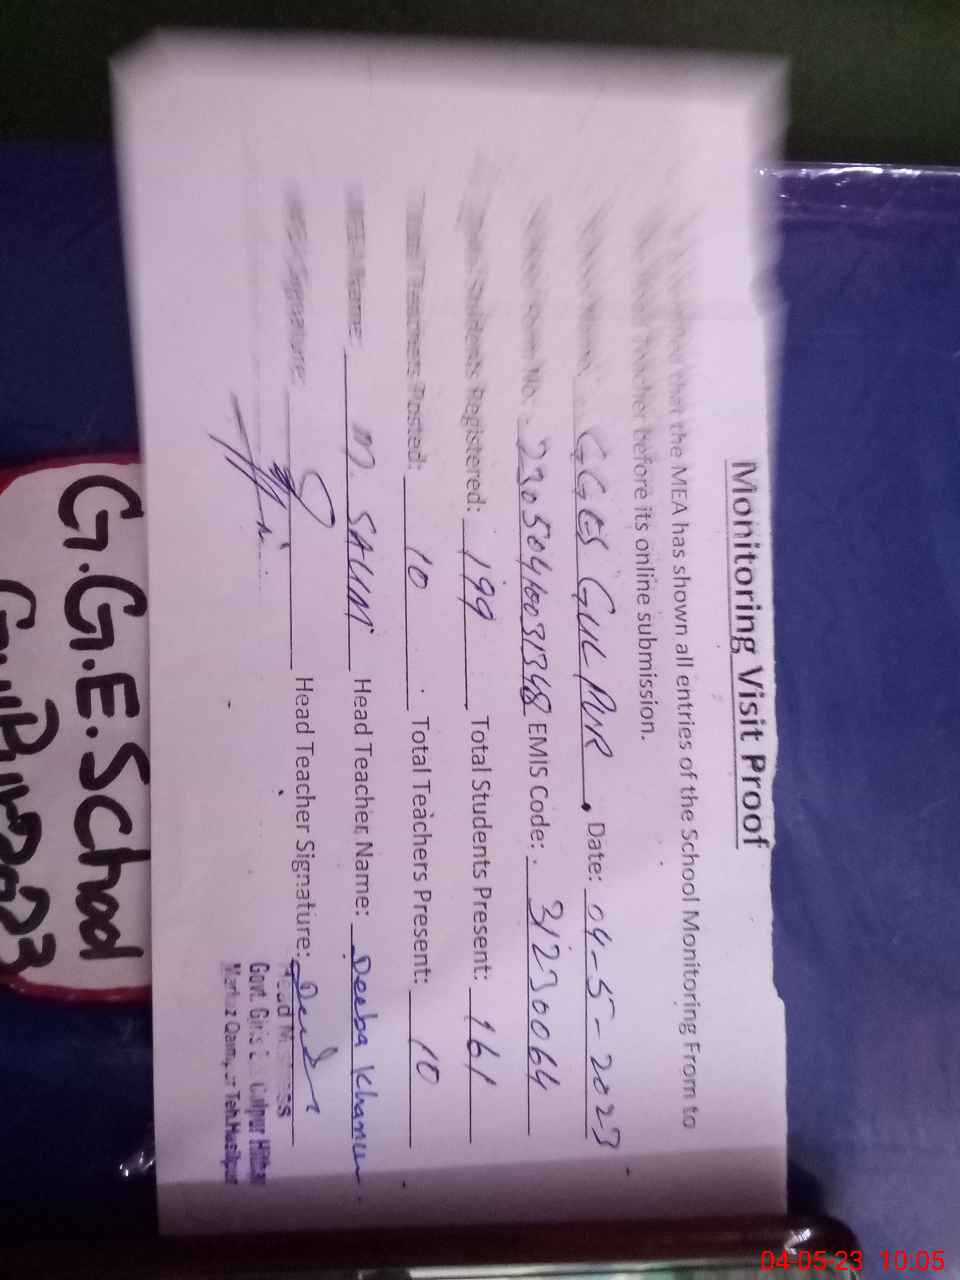 Monitoring Visit Proof
that the MEA has shown all entries of the School Monitoring From to
Teacher before its online submission.
GGES GUL PUR Date: 04-5-2023
No: 23050410031348 EMIS Code: 31230064
Students Registered: 199 Total Students Present: 161
Total Teachers Posted: 10 Total Teachers Present: 10
Name: M. SALIM Head Teacher Name: Deeba Khanum
Signature: Head Teacher Signature:
Govt. Girls Gulpur
Markaz Qaimpur Teh. Hasilpur
G.G.E.School
04-05-23 10:05